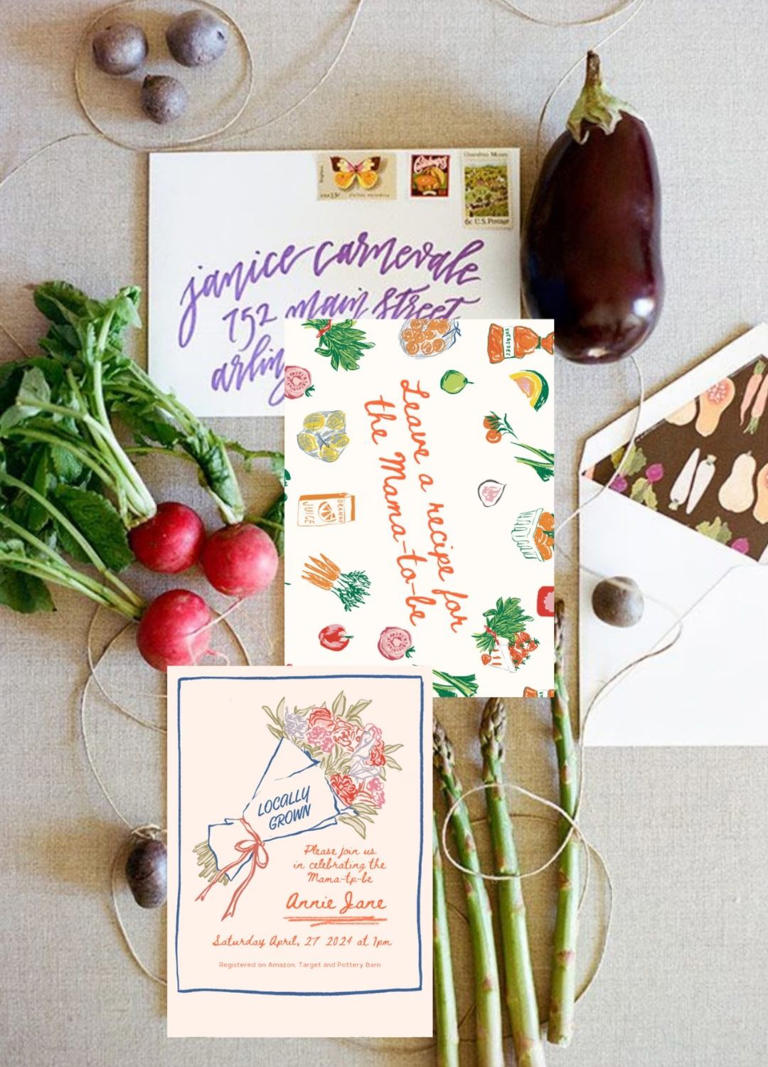 Grandma Moses
USA 13c
6c U.S. Postage
janice carnevale
752 main street
arling
Leave a recipe for
the Mama-to-be
ORANGE
JUICE
LOCALLY
GROWN
Please join us
in celebrating the
Mama-tp-be
Annie Jane
Saturday April, 27 2024 at 1pm
Registered on Amazon, Target and Pottery Barn